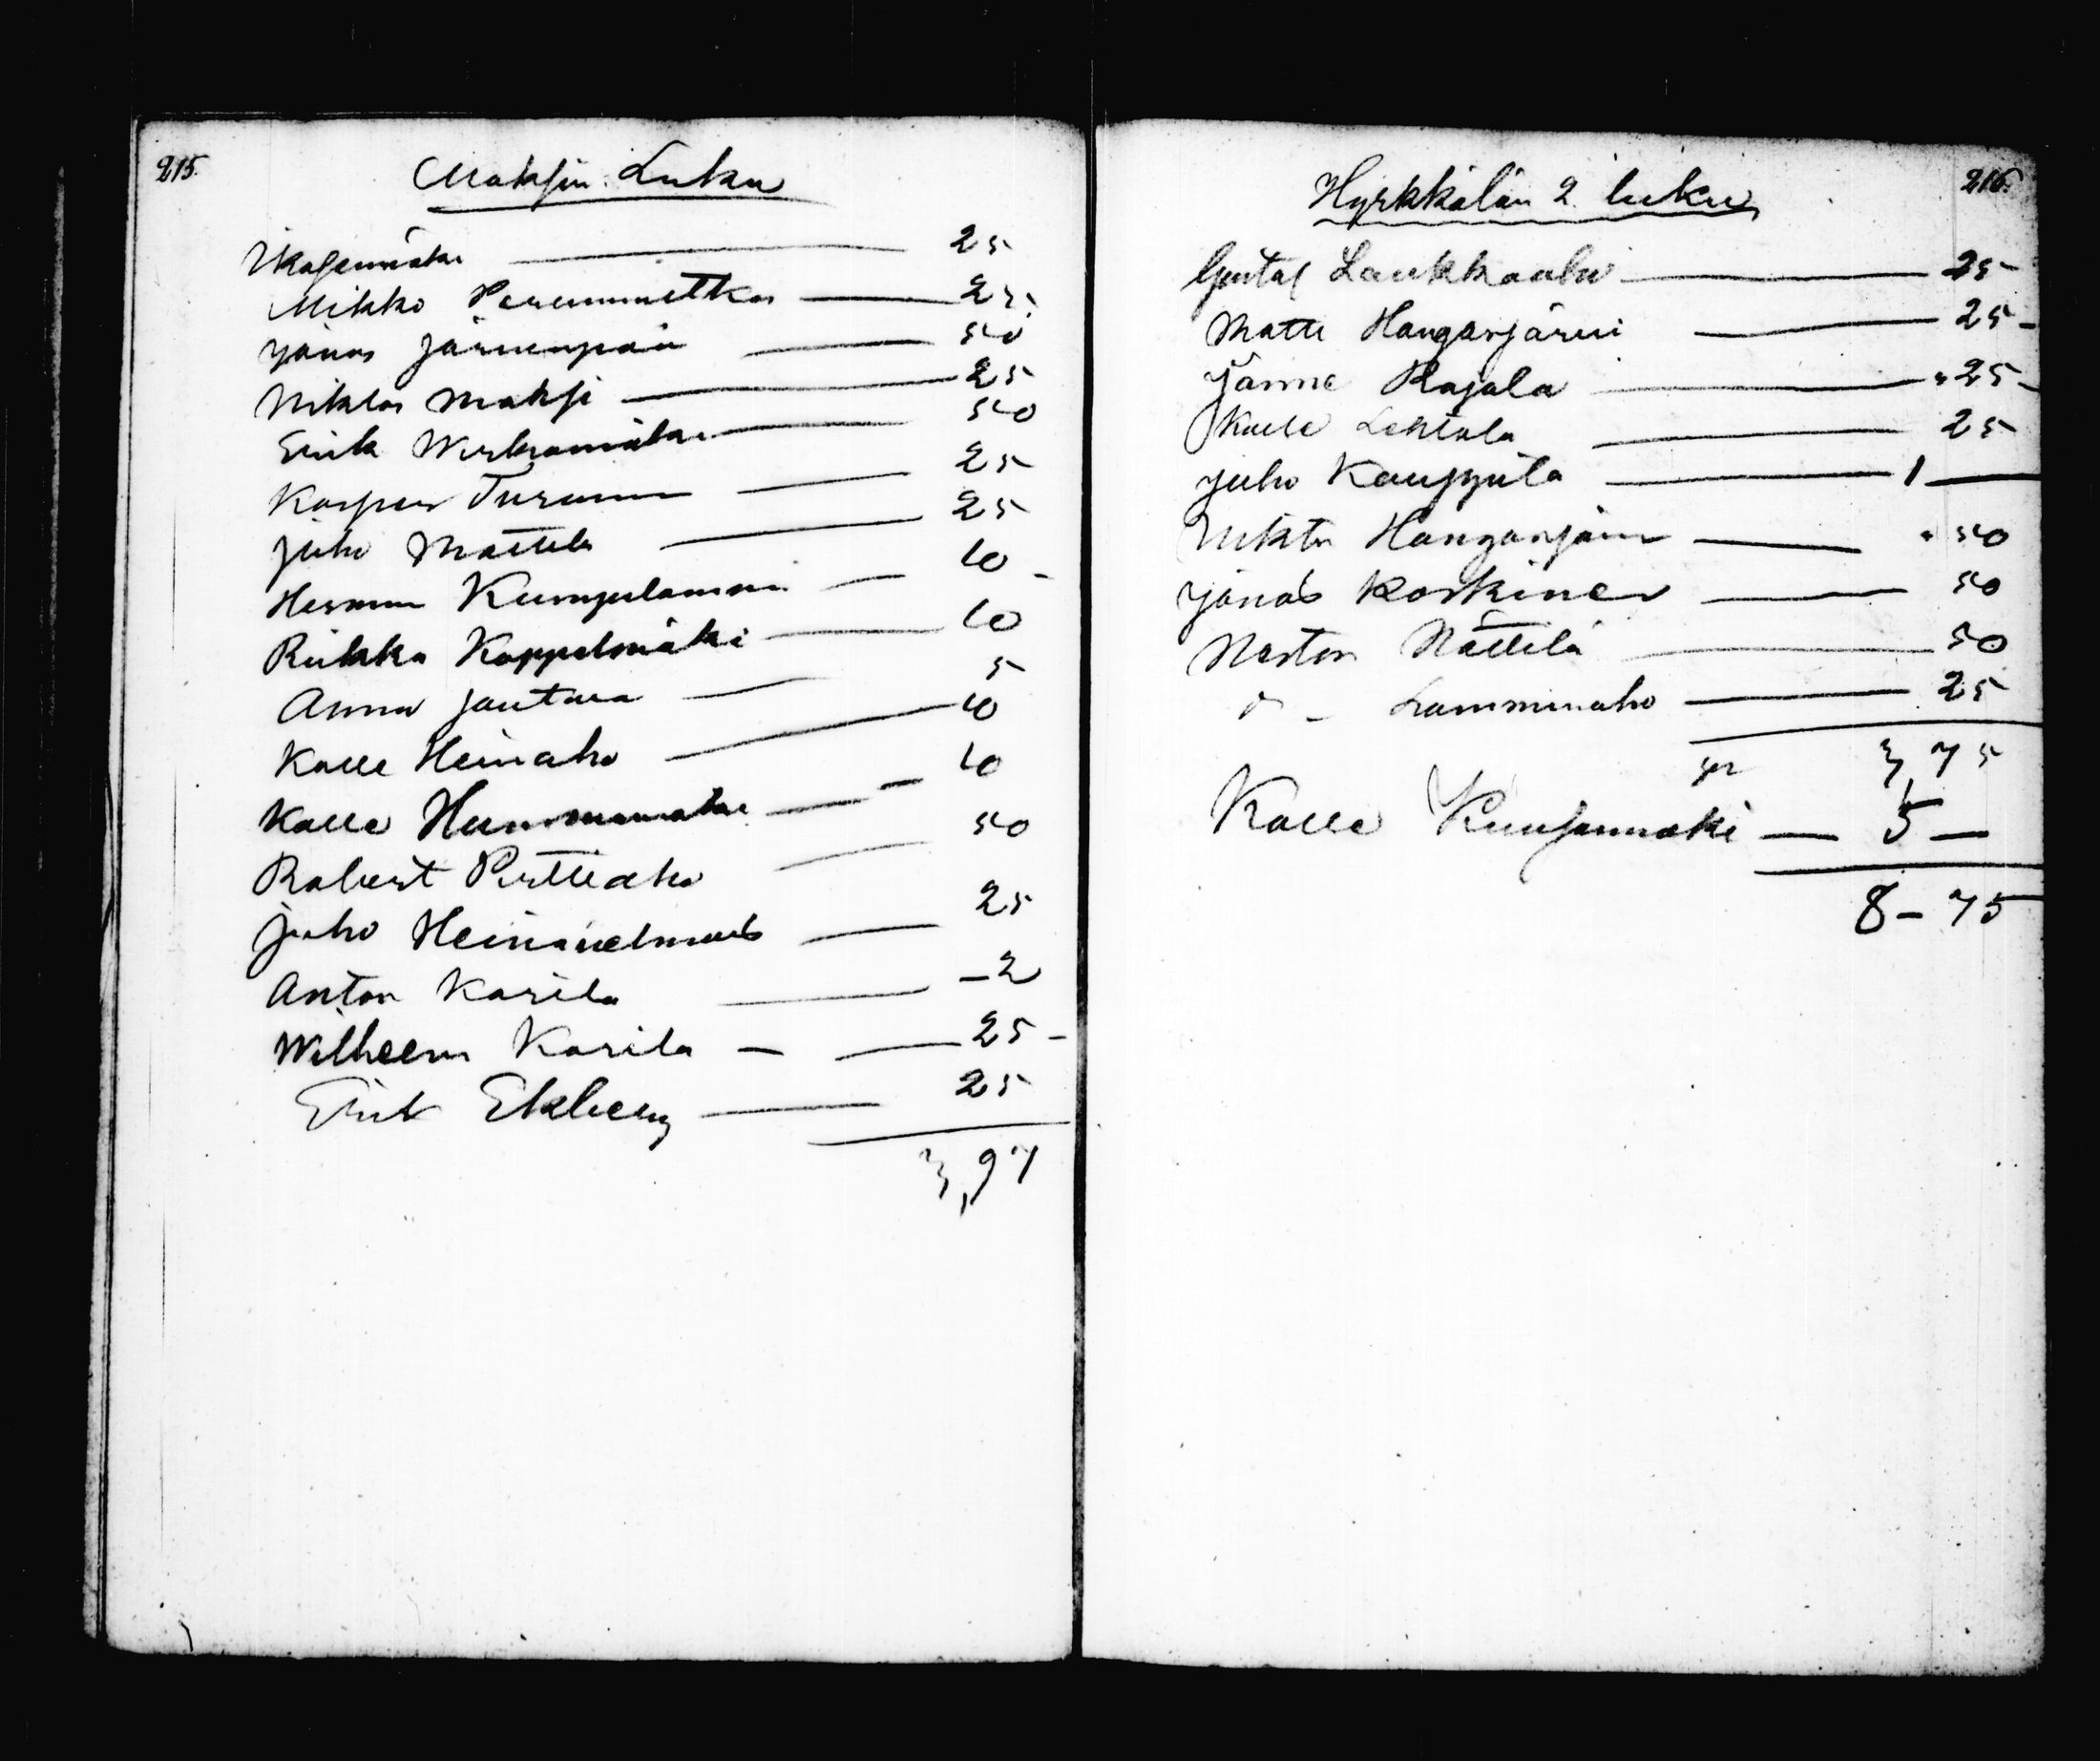 215.
Maksin Luku
25
Mikko 25
Jonas Järvenpää 50
Niklas Maksi 25
Erik 50
Kasper Turunen 25
Juho Mattila 25
Herman Kumpulainen 10 -
Riikka Koppelmäki 10
Anna Jautava 5
Kalle Heinaho 10
Kalle 10
Robert Perttiaho 50
Juho 25
Anton Karila - 2
Wilhelm Karila — 25 -
Erik Ekberg 25
3,97
216.
Hyrkkälän 2 luku
Gustaf 25 -
Matti Hangasjärvi 25 -
Janne Rajala " 25 -
Kalle Lehtola 25
Juho Kauppila 1 —
Niktor Hangasjärvi " 50
Jonas Koskinen 50
Nestor Mättilä 50
d - Lamminaho 25
3,75
Kalle Kuusannäki — 5 —
8 - 75